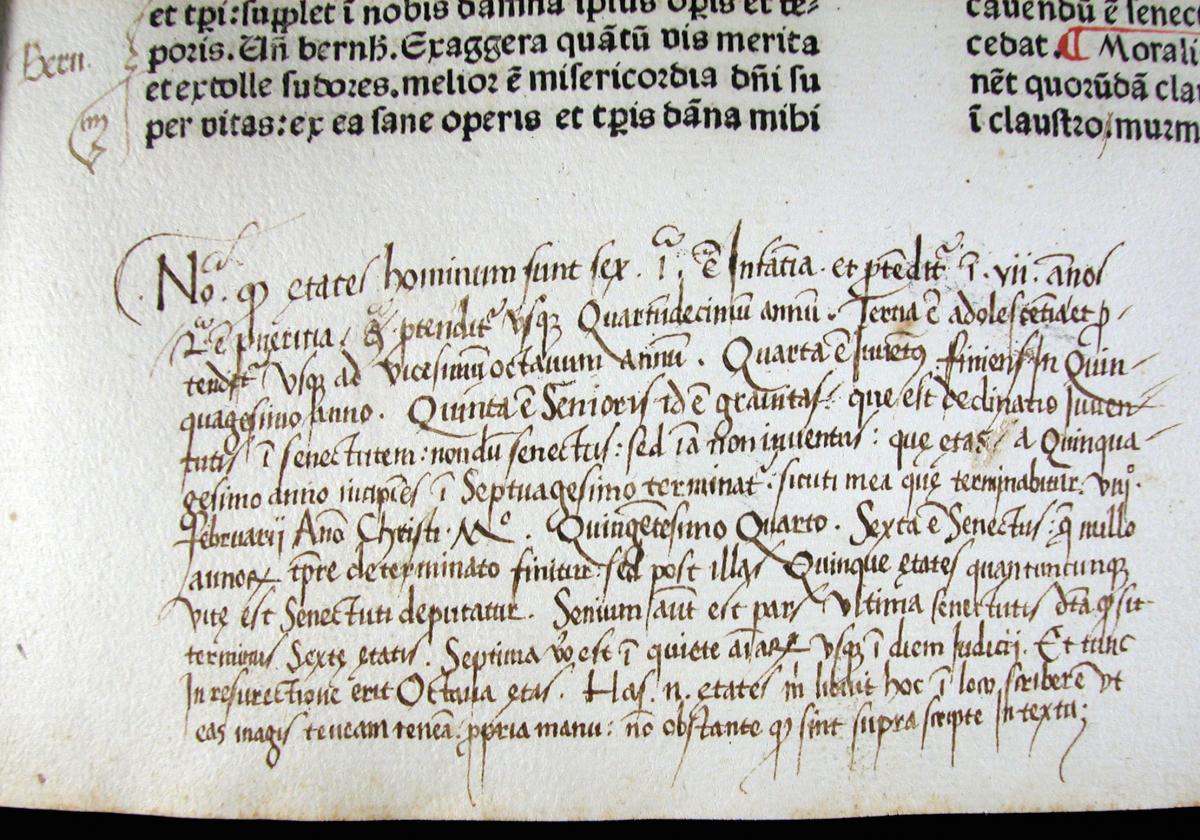 et tp̄i: supplet ī nobis damna ipius opis et te⸗
poris. Un̄ bernh. Exaggera quātū vis merita
et extolle sudores. melior ē misericordia dn̄i su
per vitas: ex ea sane operis et tp̄is dāna mihi
cauendū ē senec
cedat. ¶ Morali
nēt quorūdā cla
ī claustro, murm
Bern.
No.ᵃ ꝙ etates hominum sunt sex. i.ᵃ ē Infātia. et ꝓtēditʳ ī. vii. ānos
2.ᵃ ē pueritia. ꝓtenditʳ vsqꝫ Quartūdecimū annū. Tertia ē adolescētia et ꝓ-
tenditʳ Vsqꝫ ad vicesimū octauum annū. Quarta ē Iuuētꝰ finiens In Quin-
quagesimo anno. Quinta ē Senioris id ē grauitas: que est declinatio Iuuen-
tutis ī senectutem: nondū senectus: sed iā non iuuentus: quę ętas a Quinqua-
gesimo anno incipiēs ī Septuagesimo terminatʳ. sicuti mea quę terminabitur. viijᵒ.
februarij Anō Christi. Mᵒ. Quingētesimo Quarto. Sexta ē Senectus: q̄ nullo
annoꝝ tp̄re determinato finitur: sed post illas Quinque ętates quantuncunqꝫ
vitę est Senectuti deputatur. Senium aūt est pars vltima senectutis dc̄ta ꝙ sit
terminus Sextę ętatis. Septima vᵒ est ī quiete aīaꝝ vsqꝫ ī diem Iudicij. Et tunc
In resurectione erit Octaua ętas. Has .n. etates m̄ libuit hoc ī loco scribere vt
eas magis teneam ꝓpria manu: nō obstante ꝙ sint supra scripte In textu;